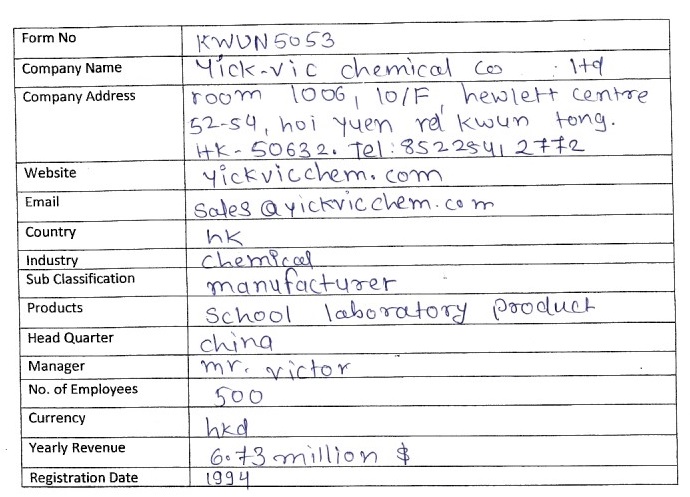 Form No KWUN5053
Company Name Yick-vic chemical co . ltd
Company Address room 1006, 10/F, hewlett centre
52-54, hoi yuen rd kwun tong.
HK-50632. Tel: 85225412772
Website yickvicchem.com
Email sales@yickvicchem.com
Country hk
Industry chemical
Sub Classification manufacturer
Products school laboratory product
Head Quarter china
Manager mr. victor
No. of Employees 500
Currency hkd
Yearly Revenue 6.73 million $
Registration Date 1994